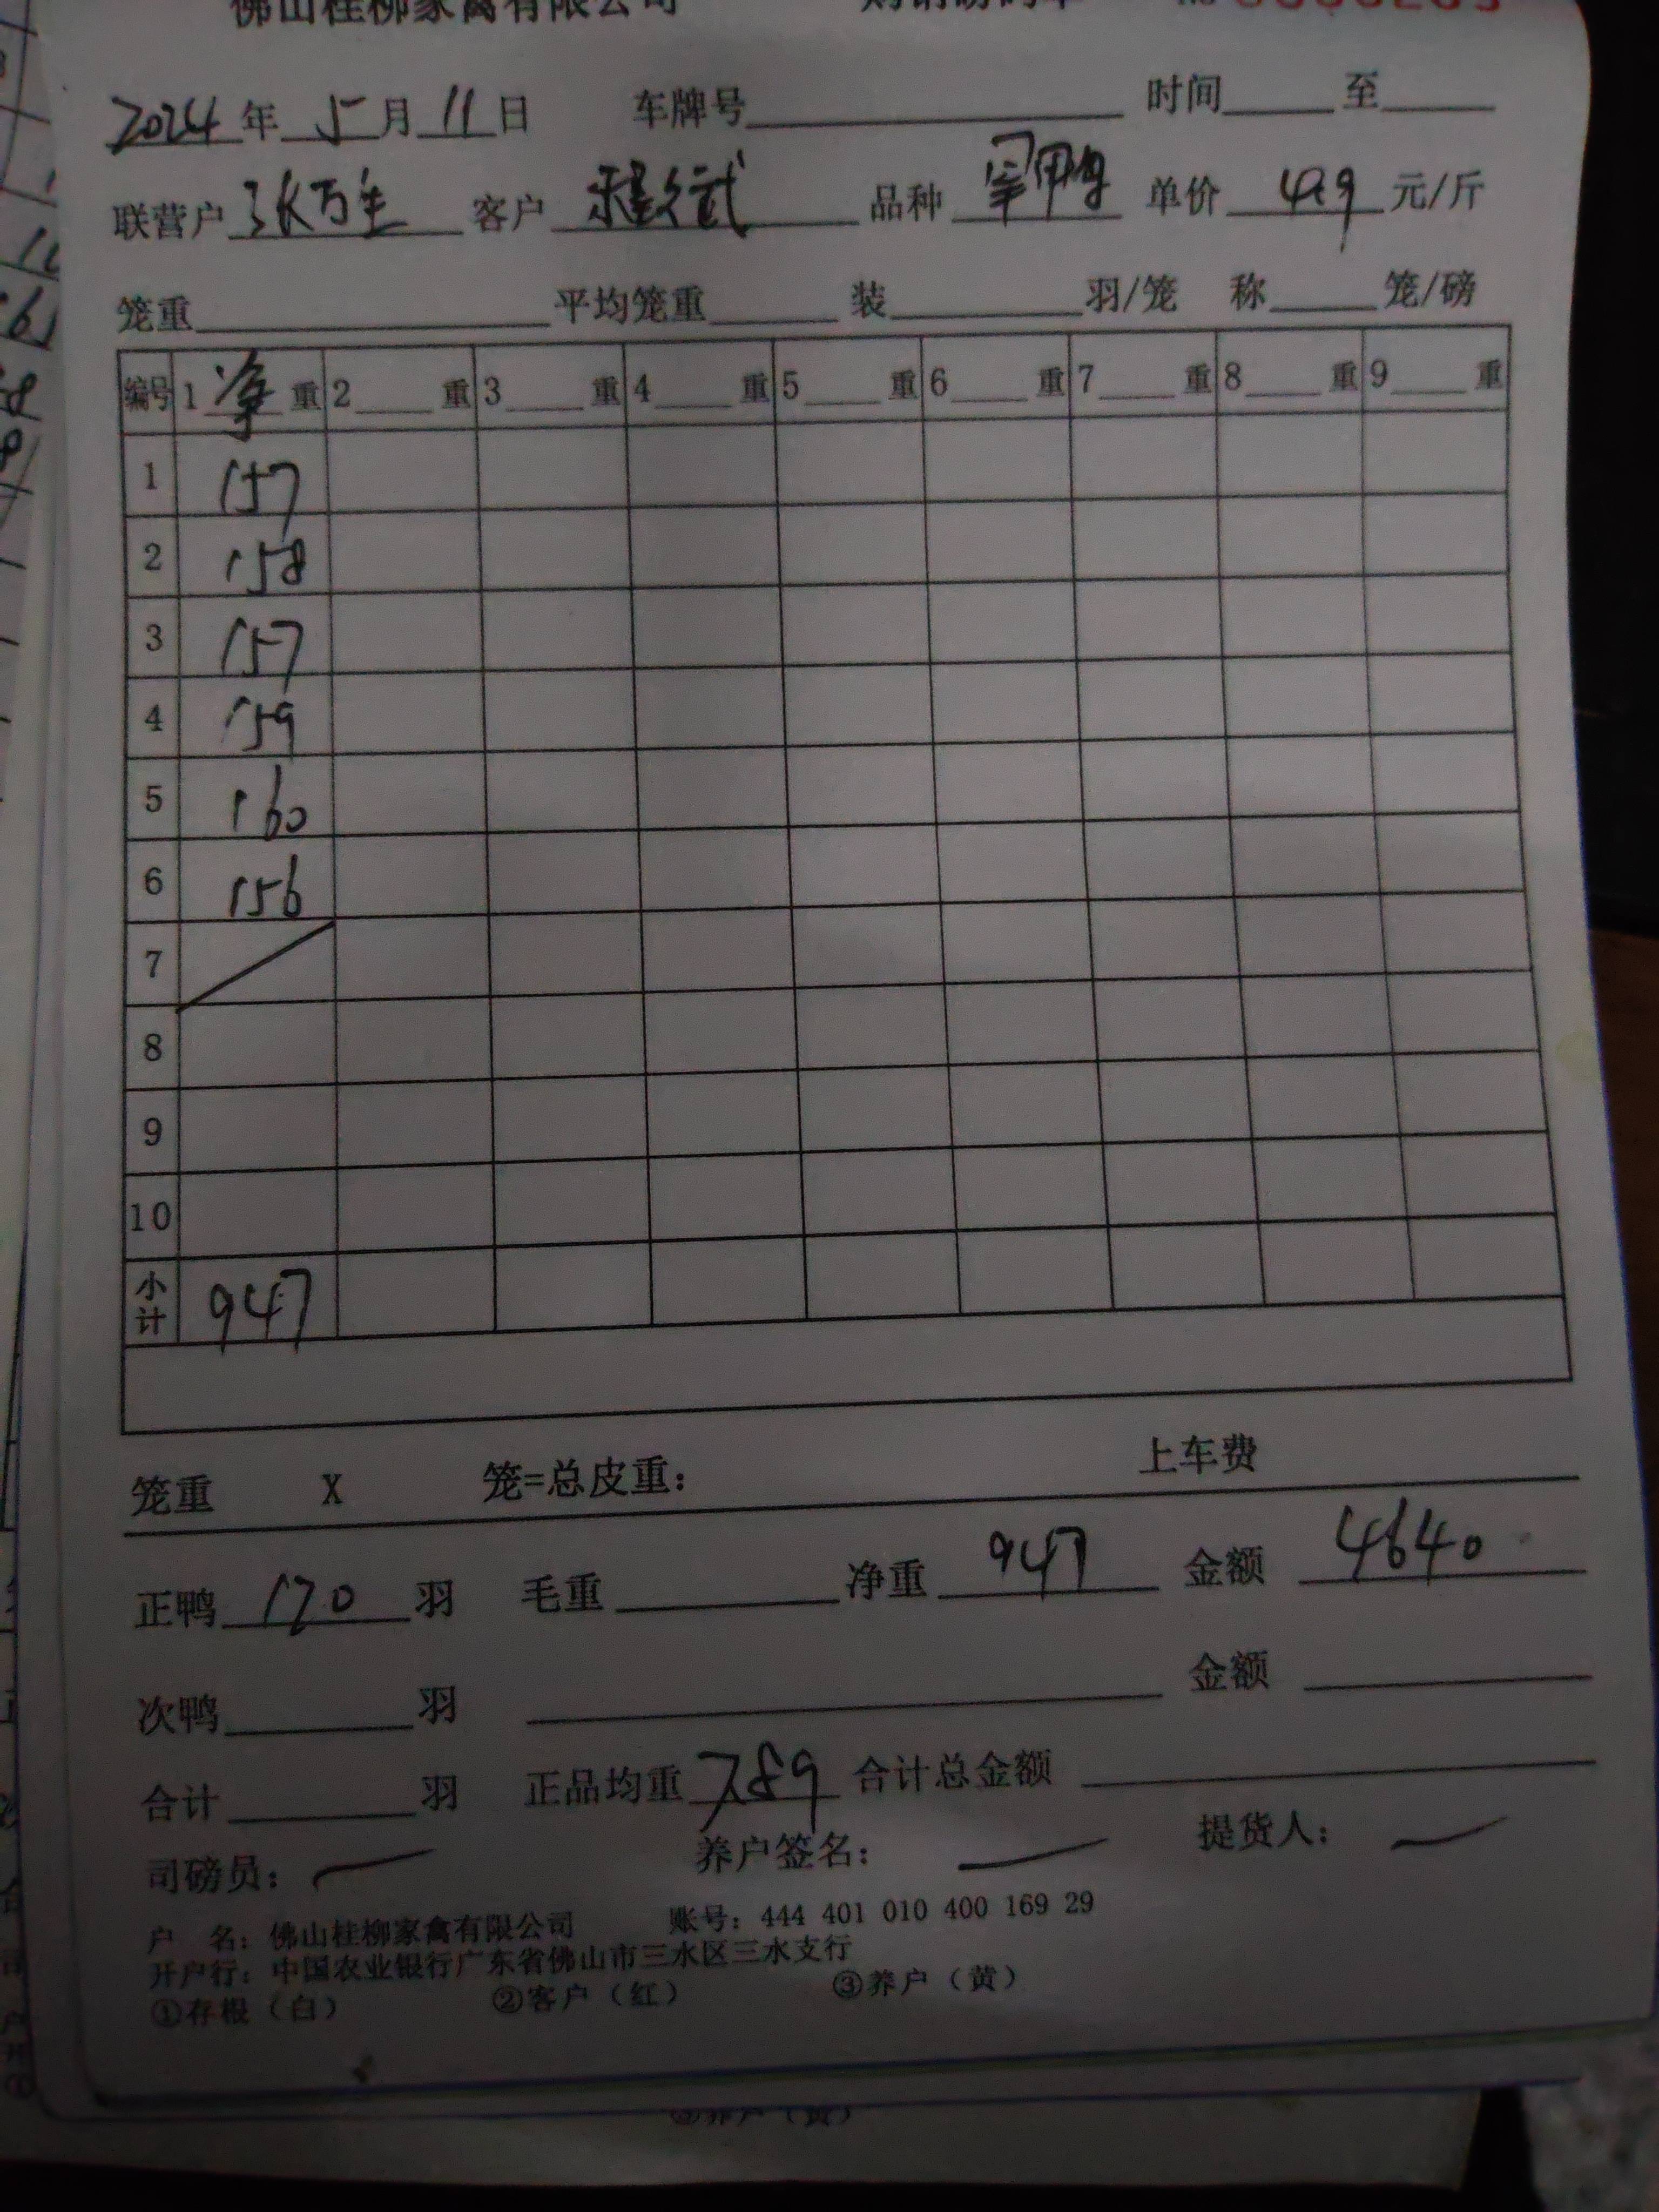 佛山桂柳家禽有限公司
2024年 5月 11日 车牌号 时间 至
联营户 张万生 客户 程 武 品种 鸭 单价 4.9 元/斤
笼重 平均笼重 装 羽/笼 称 笼/磅
编号 1 净 重 2 重 3 重 4 重 5 重 6 重 7 重 8 重 9 重
1 157
2 158
3 157
4 159
5 160
6 156
7
8
9
10
小计 947
笼重 X 笼=总皮重: 上车费
正鸭 120 羽 毛重 净重 947 金额 4640
次鸭 羽 金额
合计 羽 正品均重 789 合计总金额
司磅员: 养户签名: 提货人:
户 名: 佛山桂柳家禽有限公司 账号: 444 401 010 400 169 29
开户行: 中国农业银行广东省佛山市三水区三水支行
①存根（白） ②客户（红） ③养户（黄）